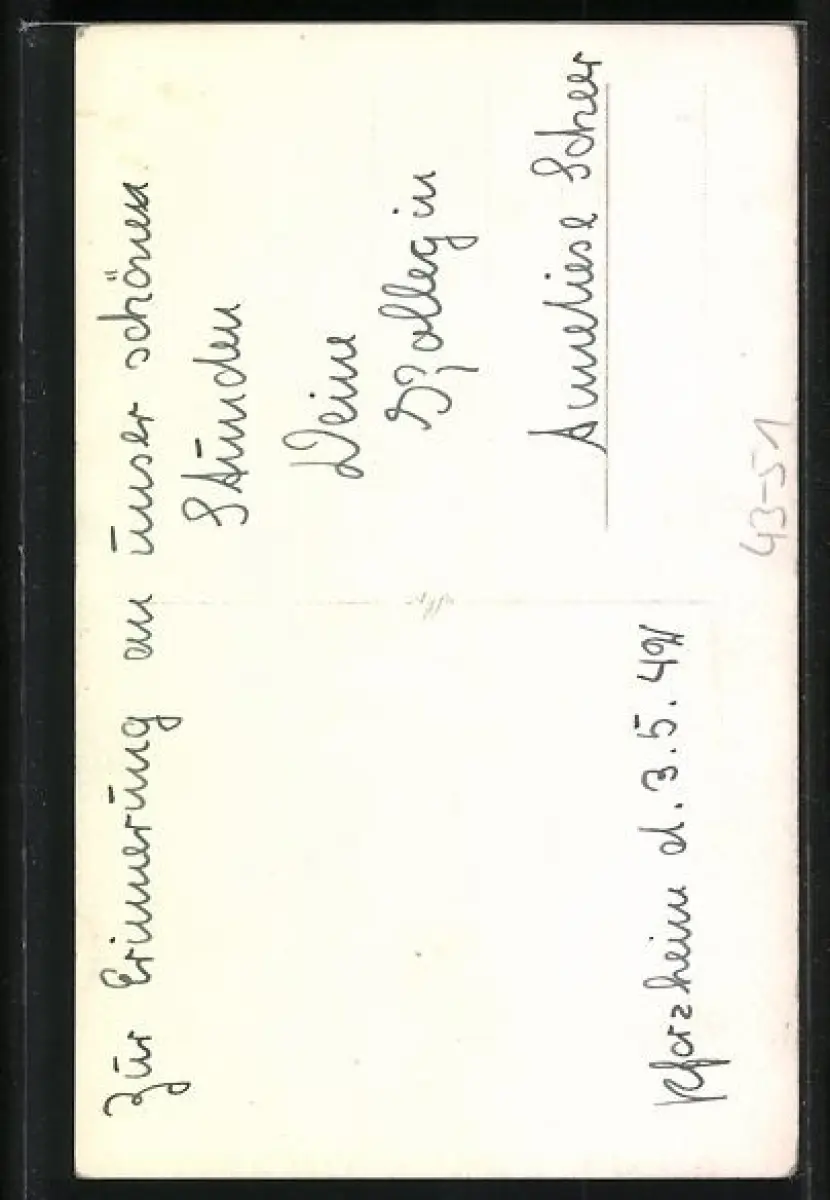 Zur Erinnerung an unser schönen
Stunden
Deine
Kollegin
Anneliese Scheer
Pforzheim d. 3.5.
43-51